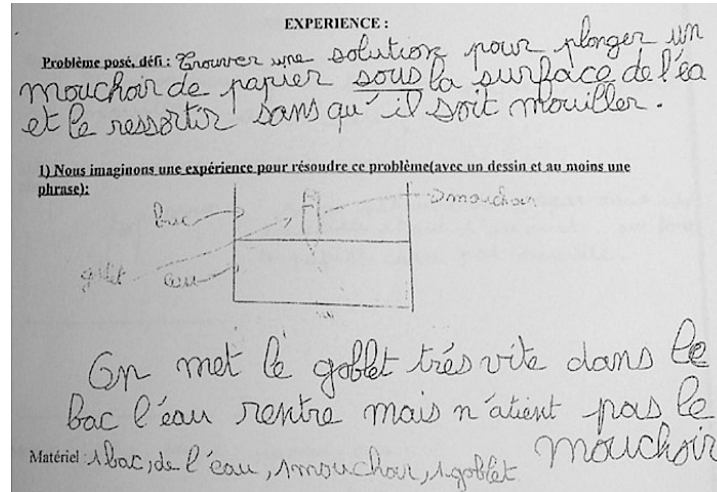 EXPERIENCE :
Problème posé, défi : Trouver une solution pour plonger un
mouchoir de papier sous la surface de l'éa
et le ressortir sans qu'il soit mouiller.
1) Nous imaginons une expérience pour résoudre ce problème(avec un dessin et au moins une
phrase):
bac
mouchoir
goblet
eau
On met le goblet trés vite dans le
bac l'éau rentre mais n'atient pas le
mouchoir
Matériel : 1 bac, de l'éau, 1 mouchoir, 1 goblet